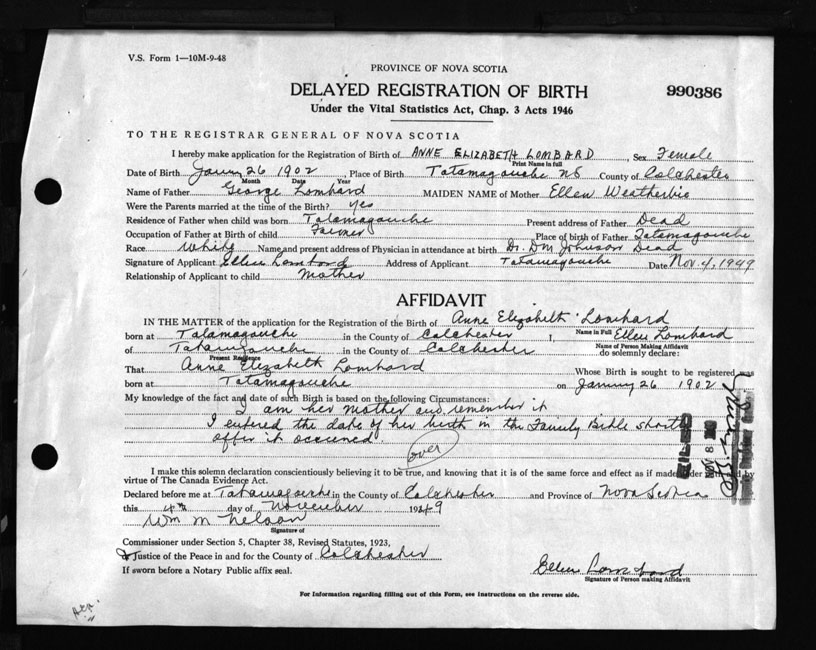 V.S. Form 1—10M-9-48
PROVINCE OF NOVA SCOTIA
DELAYED REGISTRATION OF BIRTH 990386
Under the Vital Statistics Act, Chap. 3 Acts 1946
TO THE REGISTRAR GENERAL OF NOVA SCOTIA
I hereby make application for the Registration of Birth of ANNE ELIZABETH LOMBARD, Sex Female
Print Name in full
Date of Birth January 26 1902, Place of Birth Tatamagouche NS County of Colchester
Month Date Year
Name of Father George Lombard MAIDEN NAME of Mother Ellen Weatherbie
Were the Parents married at the time of the Birth? yes
Residence of Father when child was born Tatamagouche Present address of Father Dead
Occupation of Father at Birth of child Farmer Place of birth of Father Tatamagouche
Race White Name and present address of Physician in attendance at birth Dr. Dm Johnson Dead
Signature of Applicant Ellen Lombard Address of Applicant Tatamagouche Date Nov. 4, 1949
Relationship of Applicant to child Mother
AFFIDAVIT
IN THE MATTER of the application for the Registration of the Birth of Anne Elizabeth Lombard
Name in Full
born at Tatamagouche in the County of Colchester I, Ellen Lombard
Name of Person Making Affidavit
of Tatamagouche in the County of Colchester do solemnly declare:
Present Residence
That Anne Elizabeth Lombard Whose Birth is sought to be registered was
born at Tatamagouche on January 26 1902
My knowledge of the fact and date of such Birth is based on the following Circumstances:
I am her mother and remember it
I entered the date of her birth in the Family Bible shortly
after it occurred.
over
I make this solemn declaration conscientiously believing it to be true, and knowing that it is of the same force and effect as if made under and by
virtue of The Canada Evidence Act.
Declared before me at Tatamagouche in the County of Colchester and Province of Nova Scotia
this 4th day of November 1949
Wm M Nelson
Signature of
Commissioner under Section 5, Chapter 38, Revised Statutes, 1923,
Justice of the Peace in and for the County of Colchester
If sworn before a Notary Public affix seal.
Ellen Lombard
Signature of Person making Affidavit
For Information regarding filling out of this Form, see Instructions on the reverse side.
FILED
NOV 8